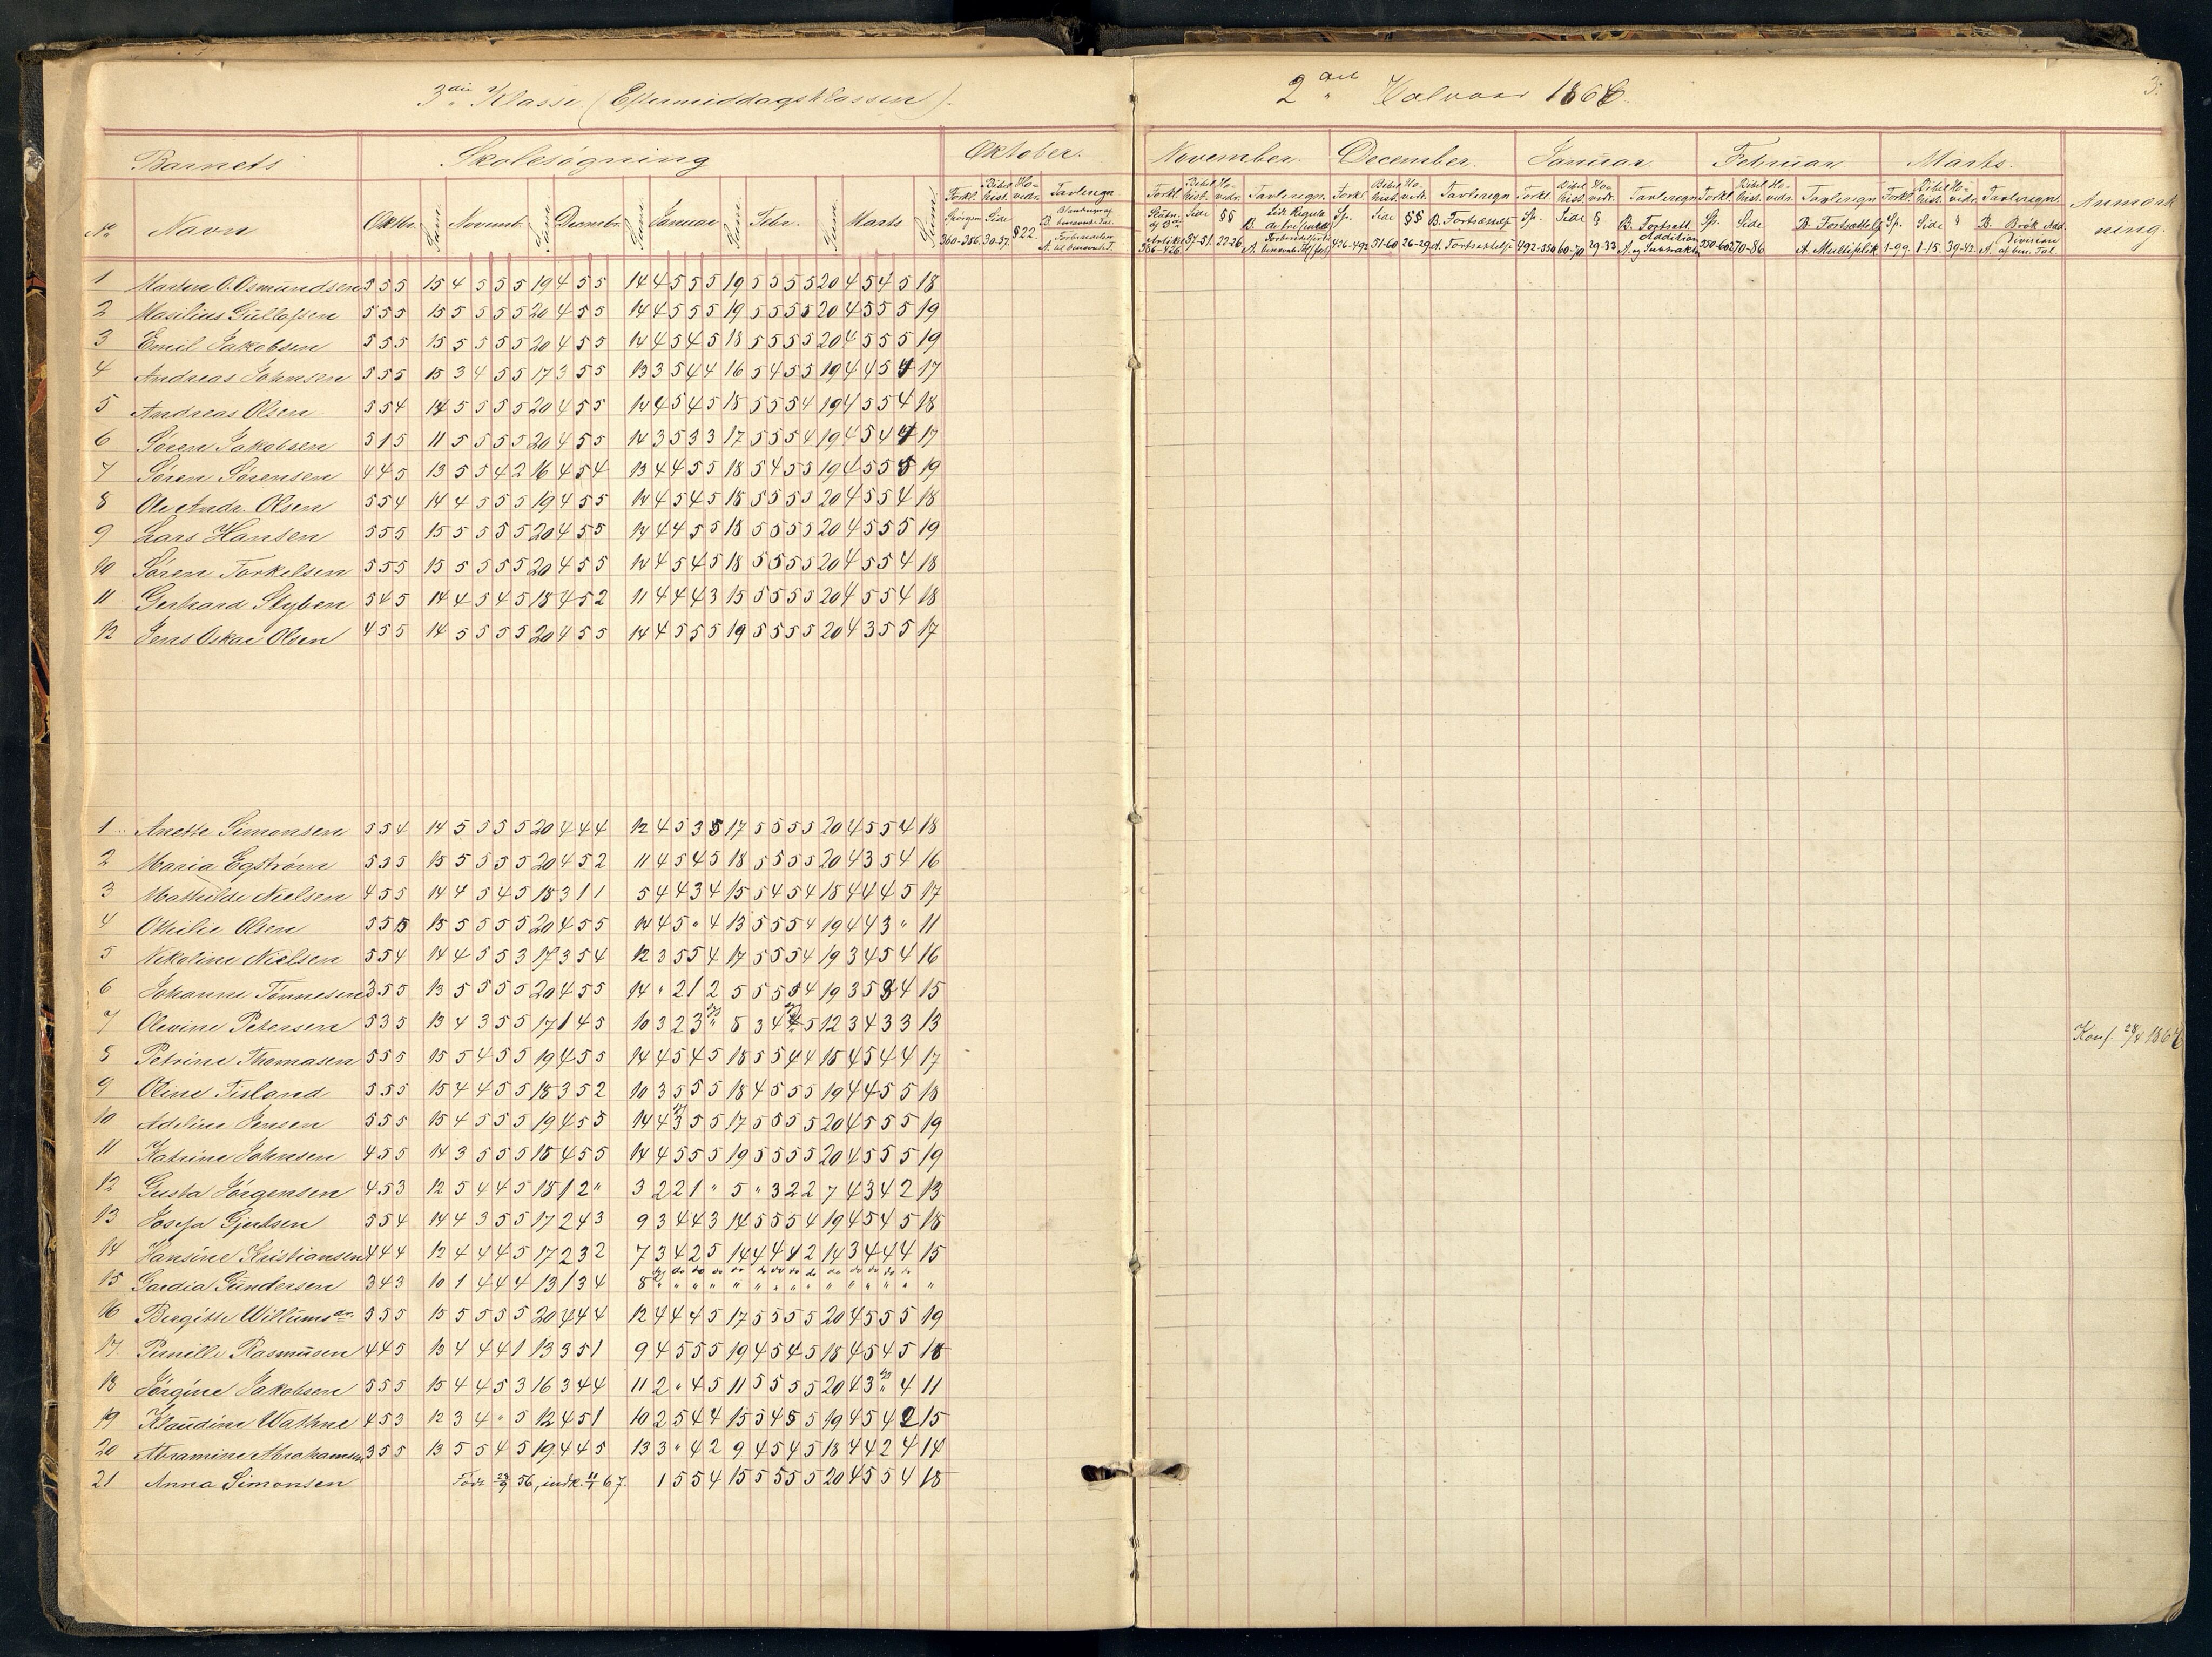 3die Klasse. (Eftermiddagsklassen).
2det Halvaar 1866.
3.
Barnets Skolesögning Oktober. November. December. Januar Februar Marts. Anmærkning.
No Navn Oktbr. Sum. Novemb. Sum Decmebr. Sum Januar Sum. Febr. Sum. Marts Sum.
Forkl. Bibelhist. Hovedr. Tavleregn
Spörgsm Side
360-386. 30-37. § 22.
Forkl. Bibelhist. Hovedr. Tavleregn. Side §§
37-51. 22-26
Forkl. Bibelhist. Hovedr. Tavleregn Sp. Side §§ B. Fortsættelse
426-492 51-60 26-29 A. Fortsættelse
Forkl. Bibelhist. Hovedr. Tavleregn Sp. Side § B. Fortsatt.
492-550 60-70 29-33 A. Addition og Subtrakt.
Forkl. Bibelhist. Hovedr. Tavleregn Sp. Side B. Fortsættelse
70-86 A. Multiplik.
Forkl. Bibelhist. Hovedr. Tavleregn Sp. Side " B. Brök Add.
1-99. 1-15. 39-42. A. Division af ben. Tal.
1 Marten O. Osmundsen 5 5 5 15 4 5 5 5 19 4 5 5 14 4 5 5 5 19 5 5 5 5 20 4 5 4 5 18
2 Masilius Gullofsen 5 5 5 15 5 5 5 5 20 4 5 5 14 4 5 5 5 19 5 5 5 5 20 4 5 5 5 19
3 Emil Jakobsen 5 5 5 15 5 5 5 5 20 4 5 5 14 4 5 4 5 18 5 5 5 5 20 4 5 5 5 19
4 Andreas Johnsen 5 5 5 15 3 4 5 5 17 3 5 5 13 3 5 4 4 16 5 4 5 5 19 4 4 5 4 17
5 Andreas Olsen 5 5 4 14 5 5 5 5 20 4 5 5 14 4 5 4 5 18 5 5 5 4 19 4 5 5 4 18
6 Sören Jakobsen 5 1 5 11 5 5 5 5 20 4 5 5 14 3 5 3 3 17 5 5 5 4 19 4 5 4 4 17
7 Sören Sörensen 4 4 5 13 5 5 4 2 16 4 5 4 13 4 4 5 5 18 5 4 5 5 19 4 5 5 5 19
8 Ole Andr. Olsen 5 5 4 14 4 5 5 5 19 4 5 5 14 4 5 4 5 18 5 5 5 5 20 4 5 5 4 18
9 Lars Hansen 5 5 5 15 5 5 5 5 20 4 5 5 14 4 4 5 5 18 5 5 5 5 20 4 5 5 5 19
10 Sören Torkelsen 5 5 5 15 5 5 5 5 20 4 5 5 14 4 5 4 5 18 5 5 5 5 20 4 5 5 4 18
11 Gerhard Styben 5 4 5 14 4 5 4 5 18 4 5 2 11 4 4 4 3 15 5 5 5 5 20 4 5 5 4 18
12 Jens Oskar Olsen 4 5 5 14 5 5 5 5 20 4 5 5 14 4 5 5 5 19 5 5 5 5 20 4 3 5 5 17
1 Anette Simonsen 5 5 4 14 5 5 5 5 20 4 4 4 12 4 5 3 5 17 5 5 5 5 20 4 5 5 4 18
2 Maria Egström 5 5 5 15 5 5 5 5 20 4 5 2 11 4 5 4 5 18 5 5 5 5 20 4 3 5 4 16
3 Mathilde Nielsen 4 5 5 14 4 5 4 5 18 3 1 1 5 4 4 3 4 15 5 4 5 4 18 4 4 4 5 17
4 Othilie Olsen 5 5 5 15 5 5 5 5 20 4 5 5 14 4 5 " 4 13 5 5 5 4 19 4 4 3 " 11
5 Nikoline Nielsen 5 5 4 14 4 5 5 3 17 3 5 4 12 3 5 5 4 17 5 5 5 4 19 3 4 5 4 16
6 Johanne Tönnesen 3 5 5 13 5 5 5 5 20 4 5 5 14 " 2 1 2 5 5 5 5 4 19 3 5 3 4 15
7 Olevine Petersen 5 3 5 13 4 3 5 5 17 1 4 5 10 3 2 3 " 8 3 4 5 12 3 4 3 3 13 Konf. 28/4 1867
8 Petrine Thomasen 5 5 5 15 5 4 5 5 19 4 5 5 14 4 5 4 5 18 5 5 4 4 18 4 5 4 4 17
9 Oline Tisland 5 5 5 15 4 4 5 5 18 3 5 2 10 3 5 5 5 18 4 5 5 5 19 4 4 5 5 18
10 Adeline Jensen 5 5 5 15 4 5 5 5 19 4 5 5 14 4 3 5 5 17 5 5 5 5 20 4 5 5 5 19
11 Katrine Johnsen 4 5 5 14 3 5 5 5 18 4 5 5 14 4 5 5 5 19 5 5 5 5 20 4 5 5 5 19
12 Gusta Jörgensen 4 5 3 12 5 4 4 5 18 1 2 " 3 2 2 1 " 5 " 3 2 2 7 4 3 4 2 13
13 Josefa Gjertsen 5 5 4 14 4 3 5 5 17 2 4 3 9 3 4 4 3 14 5 5 5 4 19 4 5 4 5 18
14 Hansine Kristiansen 4 4 4 12 4 4 4 5 17 2 3 2 7 3 4 2 5 14 4 4 4 2 14 3 4 4 4 15
15 Gardia Gundersen 3 4 3 10 1 4 4 4 13 1 3 4 8 " " " " " " " " " " " " " " "
16 Birgitte Willumsdr. 5 5 5 15 5 5 5 5 20 4 4 4 12 4 4 4 5 17 5 5 5 5 20 4 5 5 5 19
17. Pernille Rasmusen 4 4 5 13 4 4 4 1 13 3 5 1 9 4 5 5 5 19 4 5 4 5 18 4 5 4 5 18
18 Jörgine Jakobsen 5 5 5 15 4 4 5 3 16 3 4 4 11 2 " 4 5 11 5 5 5 5 20 4 3 " 4 11
19 Klaudine Wathne 4 5 3 12 3 4 " 5 12 4 5 1 10 2 5 4 4 15 5 4 5 5 19 4 5 4 2 15
20 Abramine Abrahamsen 3 5 5 13 5 5 4 5 19 4 4 5 13 3 " 4 2 9 4 5 4 5 18 4 4 2 4 14
21 Anna Simonsen Född 28/9 56, indk. 11/1 67. 1 5 5 4 15 5 5 5 5 20 4 5 5 4 18